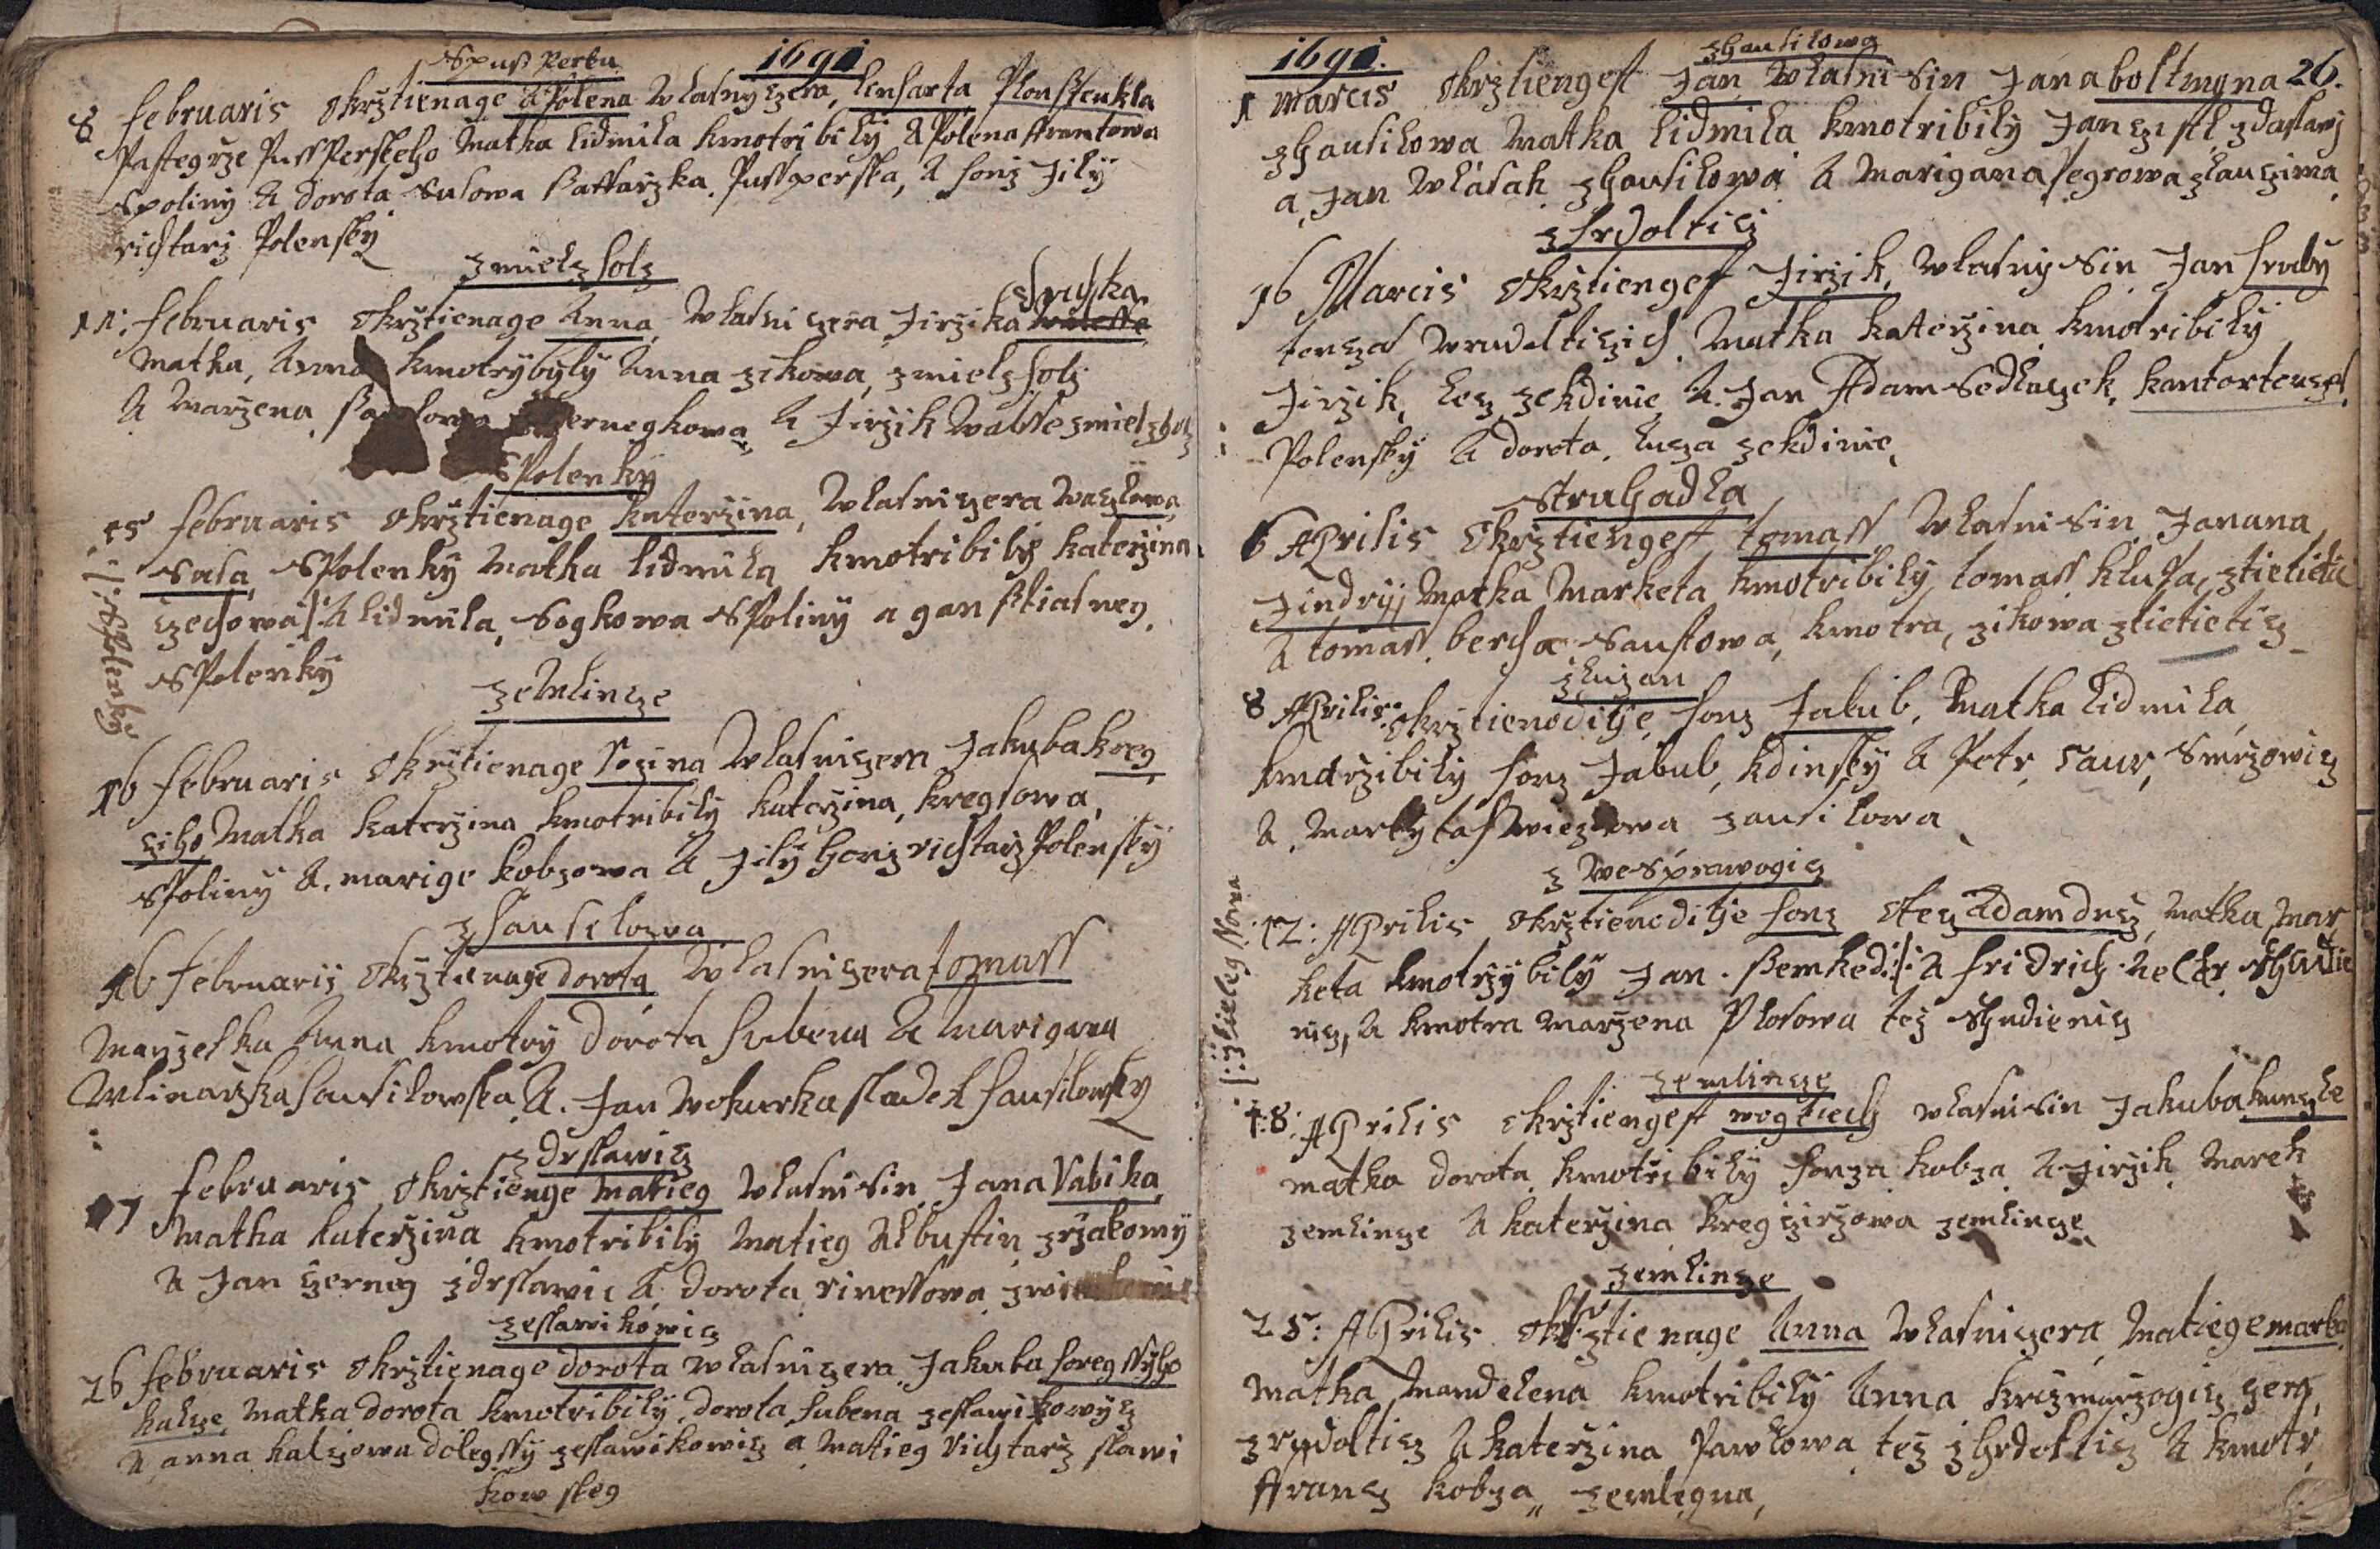 Spuß Perku
1691
8 februaris okrztienage Apolena wlasny czera, Linharta Plonssenkla
Pastegrze Pussperskeho Matka lidmila kmotri bily Apolena ffrantowa
Spoliny A dorota Susowa ssaffarzka Pussperska, A honz Jily
richtarz Polensky
zmielzholz
11: februaris okrztienage Anna wlasni czera Jirzika hruska
Matka, Anna kmotry byly Anna zikowa, zmielzholz
A Marzena czernegkowa A Jirzik Walsse zmielzholz
SPolenky
15 februaris okrztienage katerzina, wlasni czera waczlowa
Sasa, SPolenky Matka lidmila kmotri bily katerzina
czechowa /: A lidmila, Sogkowa SPoliny a gan sstiasneg
SPolenky
/: SPolenky
zemlincze
16 februaris okrztienage Rozina wlasni czera Jakuba kreg
cziho Matka katerzina kmotribily katerzina, kregsowa,
SPoliny A. marige kobzowa A Jily honz richtarz Polensky
zhausilowa
16 februarij okrztienage dorota wlasni czera tomass
Manzelka Anna kmotry dorota hubena A Marigana
Mlinarzka hausilowska A. Jan wokurka sladek hausilowsky
zdrslawicz
17 februaris okrztienge matieg wlasni sin Jana Vabika
Matka katerzina kmotribily Matieg Albustin zrzakomy
A Jan czerneg zdrslawic A dorota rinessowa
zeslawikowicz
26 februaris okrztienage dorota wlasni czera Jakuba horegssyho
kalcze Matka dorota kmotribily dorota hubena zeslawikowycz
A anna kalczowa dolegssy zeslawikowicz a Matieg richtarz slawi
kowskeg
1691.
zhausilowa
26.
1 Marcis okrztiengest Jan wlasni Sin Jana boltmyna
zhausilowa Matka lidmila kmotribily Jan zdaslawj
a Jan wlasak zhausilowa A Marigana segrowa zlauzima
zhrdolticz
16 Marcis okrztiengest Jirzik, wlasny Sin Jan hruby
tenczas wrudoltizich Matka katerzina kmotribily
Jirzik, lez zekdinie A Jan Adam Sedlaczek, kantor tenczas
Polensky A dorota luza zekdinie,
Struhadla
6 APrilis okrztiengest tomass wlasni Sin Janana
Jindry Matka Marketa kmotribily tomass klusa, ztietietic
A tomass bercha Saustowa, kmotra, zikowa ztietieticz
zluzan
8 APrilis okrztienoditie honz Jakub, Matka lidmila
kmotrzibily honz Jakub, kdinsky A Petr saur, Smrzowicz
A Markyta zausilowa
z we Sprawogicz
12: APrilis okrztienoditie honz otecz Adam ducz, Matka Mar
keta kmotrzy bily Jan ssemkedi /: A fridrich
nicz, A kmotra Marzena Plosowa tez Shudienicz
/: zbieleg Nowa
zemlincze
18: APrilis okrztiengest wogtiech wlasni sin Jakuba kunzle
matka dorota kmotribily honza kobza A Jirzik Marek
zemlincze A katerzina kregczirzowa zemlincze
zemlincze
25: APrilis okrztienage Anna wlasni czera Matiege marka
Matka Mandelena kmotribily Anna krizmarzogicz czerg,
zrudolticz A katerzina Pawlowa tez zhrdolticz A kmotr
ffrancz kobza zemlegna,